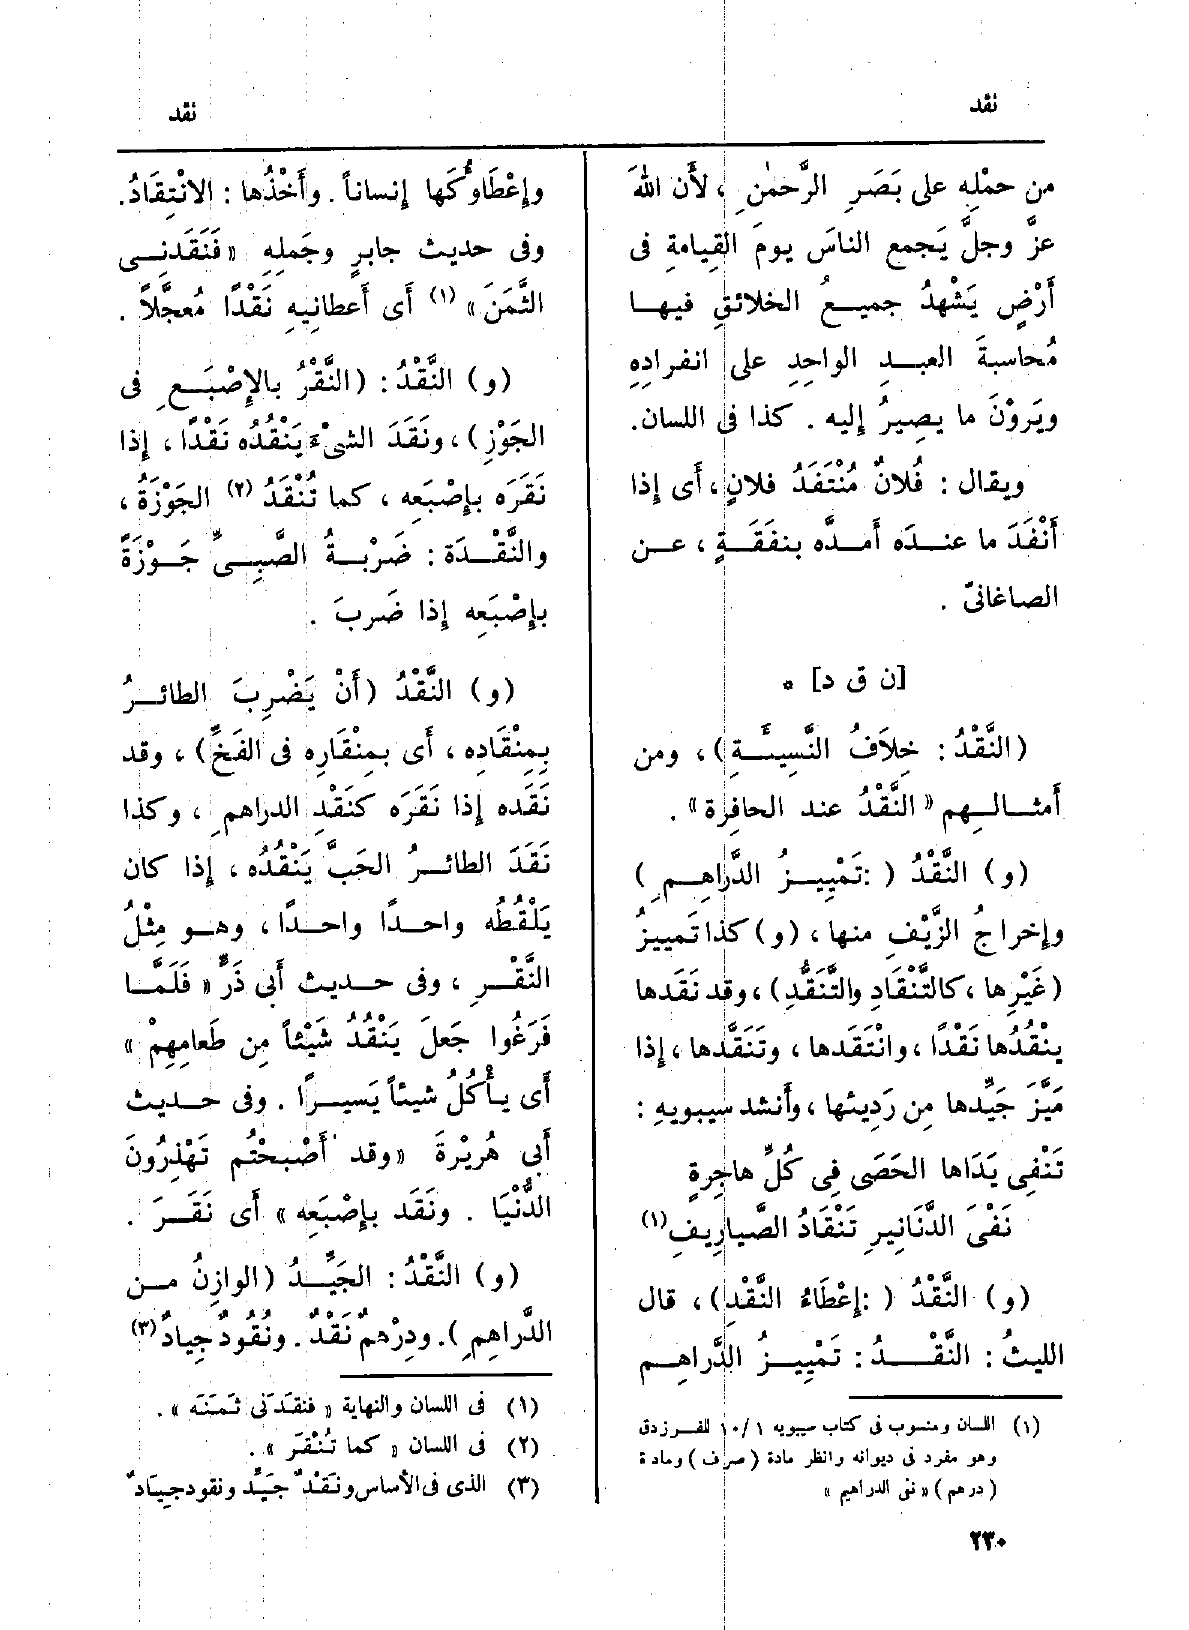 نقد
نقد
من حمْلِه على بَصَرِ الرَّحمٰنِ ، لأَن اللهَ
عزَّ وجلَّ يَجمع الناسَ يومَ القِيامةِ فى
أَرْضٍ يَشْهدُ جميعُ الخلائقِ فيها
مُحاسبةَ العبدِ الواحِدِ على انفرادِهِ
ويَرَوْنَ ما يصِيرُ إليه . كذا فى اللسان.
ويقال : فُلانٌ مُنْتَفَدُ فلانٍ ، أَى إِذا
أَنْفَدَ ما عنده أَمدَّه بنفَقَةٍ ، عن
الصاغانىّ .
[ن ق د] *
(النَّقْدُ : خِلاَفُ النَّسِيئَةِ) ، ومن
أَمثالِهم « النَّقْدُ عند الحافِرة » .
(و) النَّقْدُ ( :تَمْيِيزُ الدَّراهِمِ )
وإِخراجُ الزَّيْفِ منها ، (و) كذا تَمييزُ
(غَيْرِها ، كالتَّنْقَادِ والتَّنَقُّدِ) ، وقد نَقَدها
يَنْقُدُها نَقْدًا ، وانْتَقَدها ، وتَنَقَّدها ، إِذا
مَيَّزَ جَيِّدَها مِن رَدِيئها ، وأَنشد سيبويهِ :
تَنْفِى يَدَاها الحَصَى فِى كُلِّ هاجِرةٍ
نَفْىَ الدَّنَانِيرِ تَنْقَادُ الصَّيارِيفِ (١)
(و) النَّقْدُ ( :إِعْطَاءُ النَّقْدِ) ، قال
الليثُ : النَّقْدُ : تَمْيِيزُ الدَّراهِمِ
(١) اللسان ومنسوب فى كتاب سيبويه ١٠/١ للفرزدق
وهو مفرد فى ديوانه وانظر مادة ( صرف ) ومادة
( درهم ) « نفى الدراهيم »
وإِعْطَاؤُكَها إِنساناً . وأَخْذُها : الانْتِقَادُ.
وفى حديث جابرٍ وجَملِهِ « فَنَقَدَنِى
الثَّمَنَ » (١) أَى أَعطانِيهِ نَقْدًا مُعجَّلاً .
(و) النَّقْدُ : (النَّقْرُ بالإِصْبَعِ فى
الجَوْزِ) ، ونَقَدَ الشىْءَ يَنْقُدُه نَقْدًا ، إِذا
نَقَرَه بإِصْبَعِه ، كما تُنْقَدُ (٢) الجَوْزَةُ ،
والنَّقْدَة : ضَرْبةُ الصَّبِىِّ جَوْزَةً
بإِصْبَعِه إِذا ضَربَ .
(و) النَّقْدُ (أَنْ يَضْرِبَ الطائرُ
بِمِنْقادِه ، أَى بمِنْقارِه فى الفَخِّ) ، وقد
نَقَدَه إِذا نَقَرَه كنَقْدِ الدراهمِ ، وكذا
نَقَدَ الطائرُ الحَبَّ يَنْقُدُه ، إِذا كان
يَلْقُطُه واحدًا واحدًا ، وهو مِثْلُ
النَّقْرِ ، وفى حديث أَبى ذَرٍّ « فَلَمَّا
فَرَغُوا جَعلَ يَنْقُدُ شَيْئاً مِن طَعامِهِمْ »
أَى يأْكُلُ شيئاً يَسيرًا . وفى حديث
أَبى هُرَيْرةَ « وقد أَصْبحْتُم تَهْذِرُونَ
الدُّنْيَا . ونَقَد بإِصْبَعِه » أَى نَقَرَ .
(و) النَّقْدُ : الجَيِّدُ (الوازِنُ من
الدَّراهِمِ ). ودِرْهمٌ نَقْدٌ . ونُقُودٌ جِيادٌ (٣)
(١) فى اللسان والنهاية « فنقدَنى ثمَنَه » .
(٢) فى اللسان « كما تُنْقَر » .
(٣) الذى فى الأساس ونَقْدٌ جَيِّد ونقود جِيَادٌ
٢٣٠